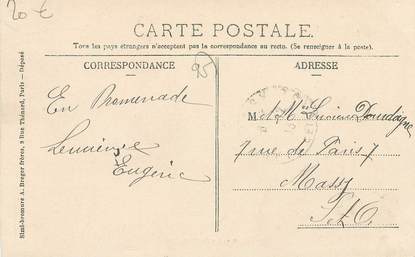 20 €
CARTE POSTALE.
Tous les pays étrangers n'acceptent pas la correspondance au recto. (Se renseigner à la poste).
CORRESPONDANCE
ADRESSE
95
En Promenade
Lucienne
Eugénie
M et Mme Lucien Dourdaigne
7 rue de Paris 7
Massy
S et O.
Simi-bromure A. Breger Frères, 9 Rue Thénard, Paris — Déposé